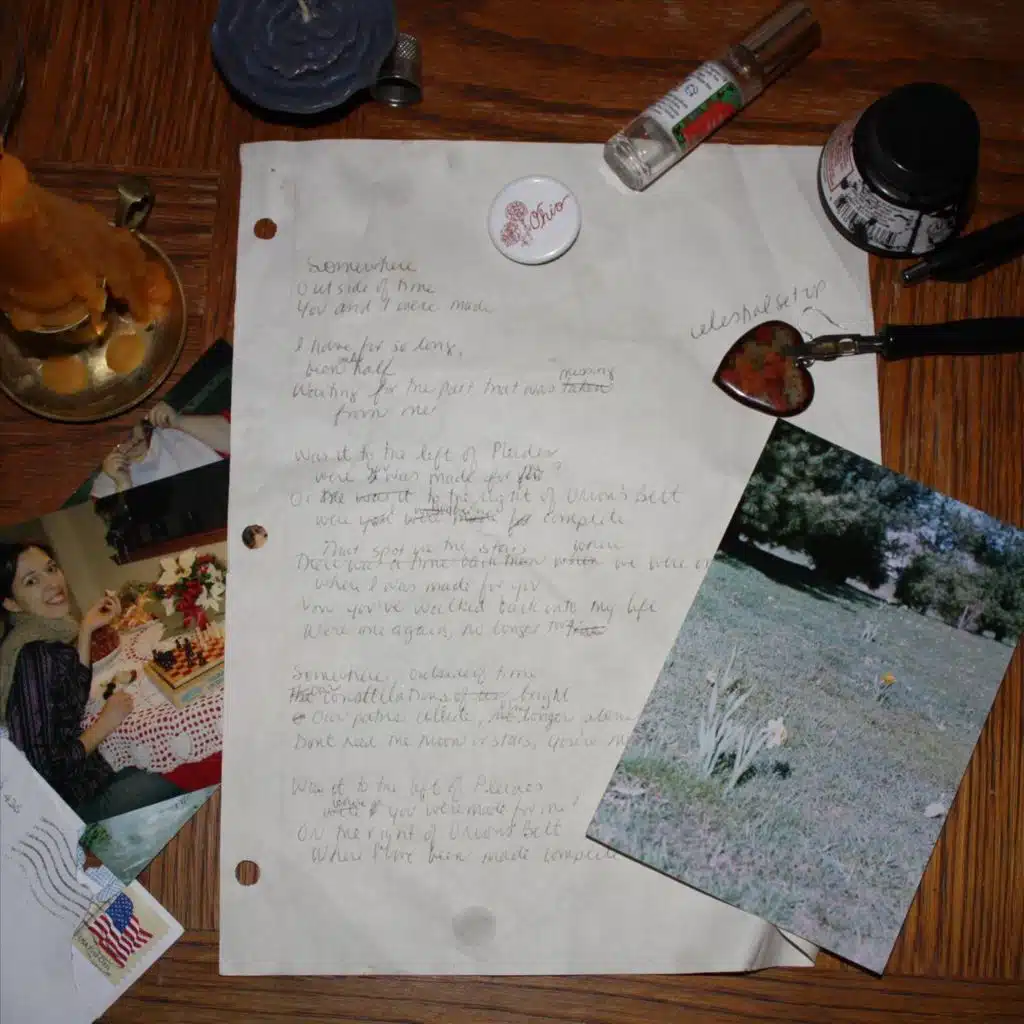 Ohio
Somewhere
Outside of time
You and I were made
celestial setup
I have for so long,
been half
missing
Waiting for the part that was taken
from me!
Was it to the left of Pleides
were I was made for
Or the was it to the right of Orion's Belt
were you were made for complete
That spot in the stars when
There was a time back then we were
where I was made for you
Now you've walked back into my life
Were one again, no longer
Somewhere, outside of time
constellations of bright
Our paths collide, no longer alone
Dont need the moon or stars, you're
Was it to the left of Pleides
you were made for me?
Or the right of Orion's Belt
Where I've been made complete